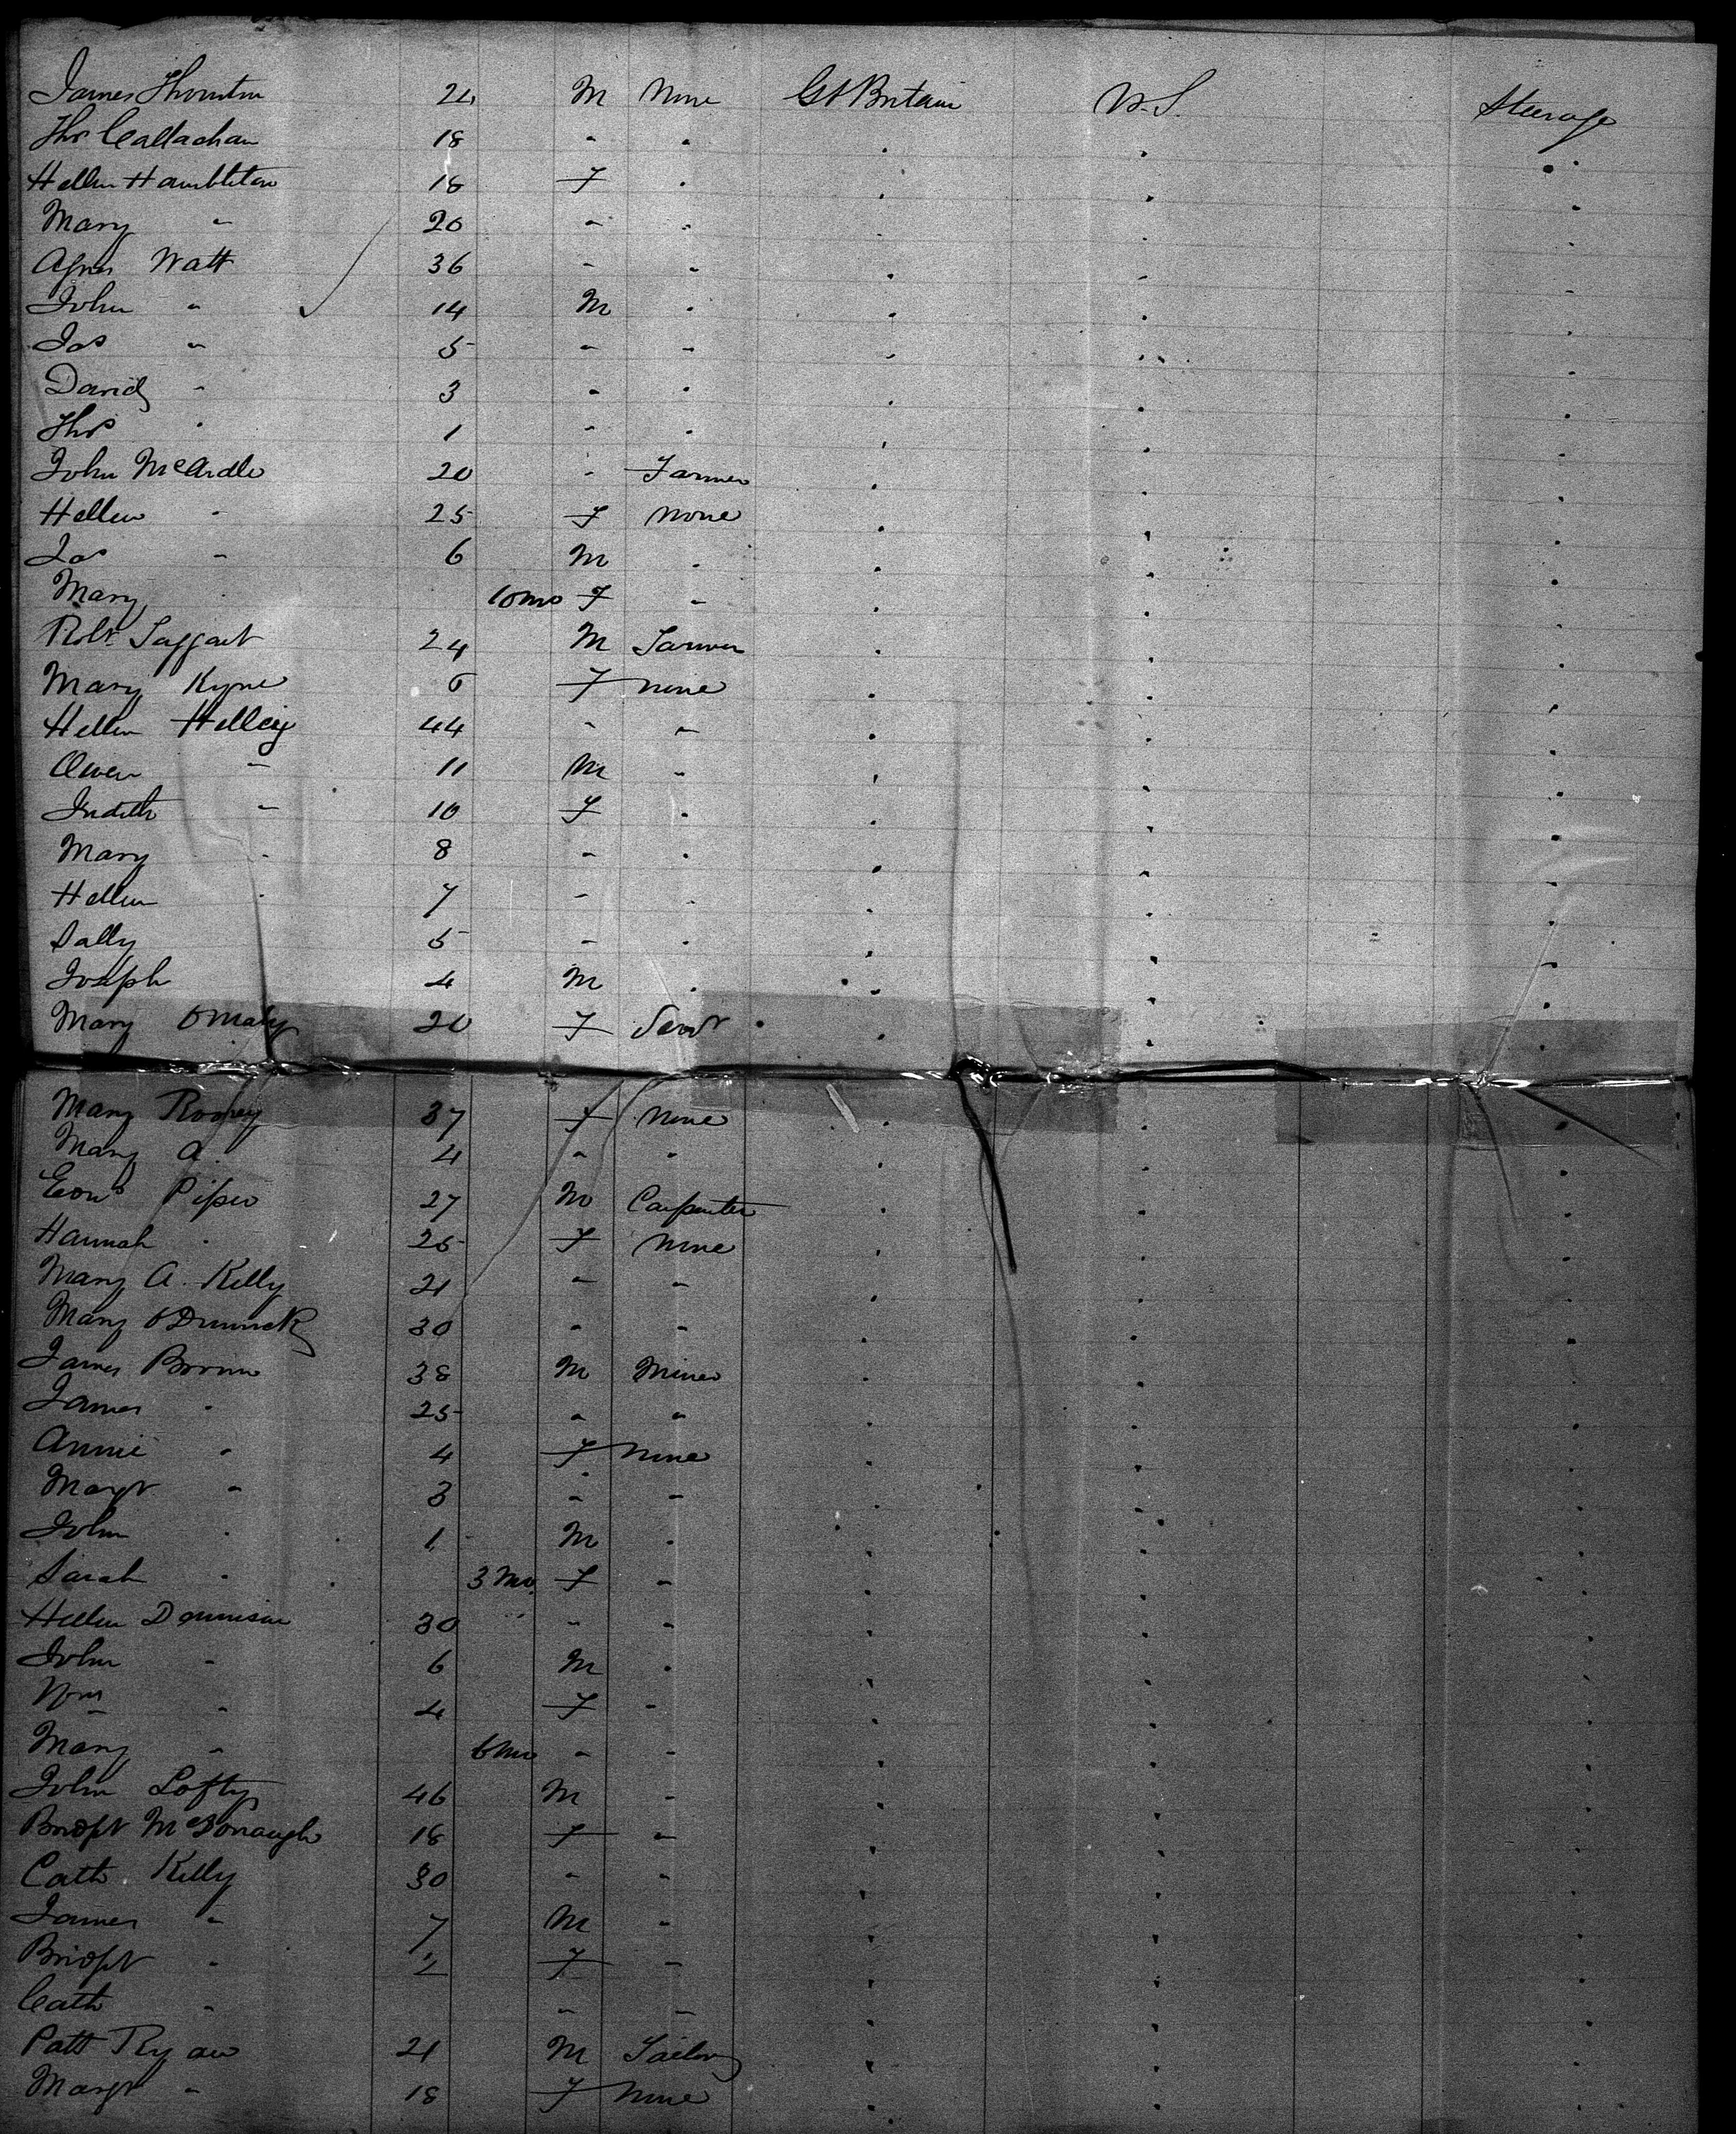 James Thornton 21 M None Gt Britain U.S. Steerage
Thos Callachan 18 " "
Hellen Hambleton 18 F "
Mary " 20 " "
Agnes Watt 36 " "
John " 14 M "
Jas " 5 " "
David " 3 " "
Thos " 1 " "
John McArdle 20 " Farmer
Hellen " 25 F None
Jas " 6 M "
Mary " 10 mo F "
Robt Taggart 24 M Farmer
Mary Kyne 6 F None
Hellen 44 " "
Owen " 11 M "
Judith " 10 F "
Mary " 8 " "
Hellen " 7 " "
Sally 5 " "
Joseph 4 M "
Mary OMaly 20 F Servt
Mary Rooney 37 F None
Mary A 4 " "
Edwd Piper 27 M Carpenter
Hannah " 25 F None
Mary A. Kelly 21 " "
Mary 30 " "
James Brown 38 M Miner
James " 25 " "
Annie " 4 F None
Margt " 3 " "
John " 1 M "
Sarah " 3 mo F "
Hellen Dennison 30 " "
John " 6 M "
Wm " 4 F "
Mary " 6 mo " "
John Lofty 46 M "
Bridgt McDonaugh 18 F "
Cath Kelly 30 " "
James " 7 M "
Bridgt " 2 F "
Cath " " "
Patt Ryan 21 M Tailor
Margt " 18 F None